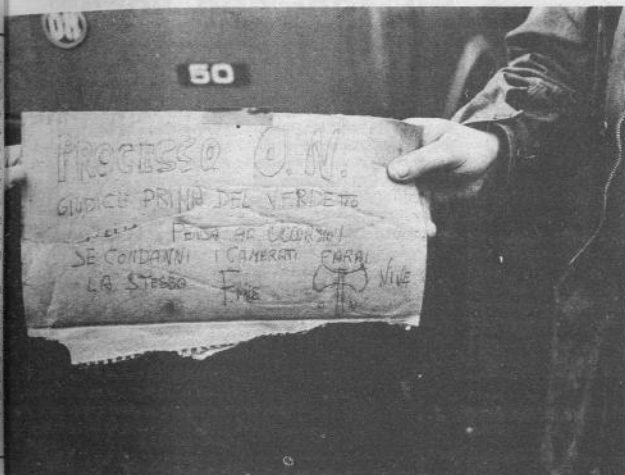 OM
50
PROCESSO O.N.
GIUDICE PRIMA DEL VERDETTO
PENSA AD OCCORSIO!
SE CONDANNI I CAMERATI FARAI
LA STESSA FINE
VIVE
O N